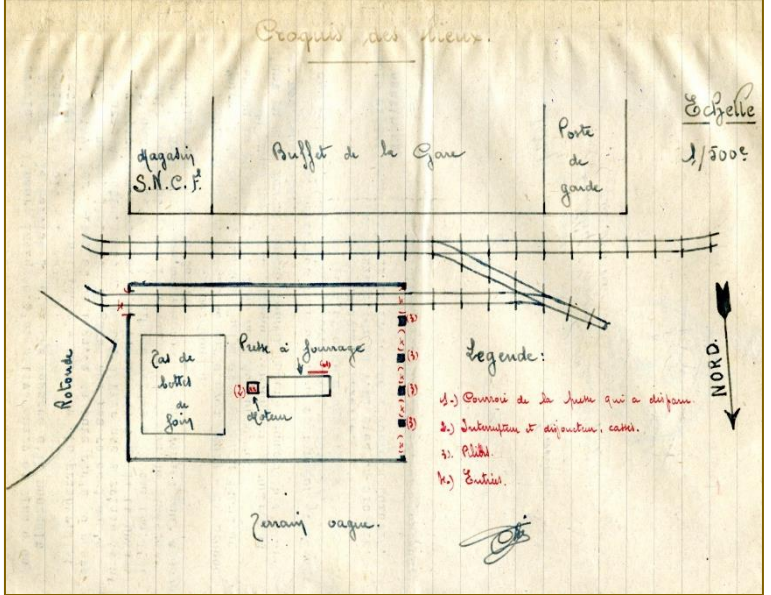 Croquis des lieux.
Echelle
1/500e
Magasin
S.N.C.F.
Buffet de la Gare
Poste
de
garde
Rotonde
Tas de
bottes
de
foin
Presse à fourrage
(1)
(2)
Moteur
(x)
(3)
(x)
(3)
(x)
(3)
(x)
(3)
(x)
NORD.
Légende:
1.) Courroie de la presse qui a disparu.
2.) Interrupteur et disjoncteur, cassés.
3). Piliers.
x.) Entrées.
Terrain vague.